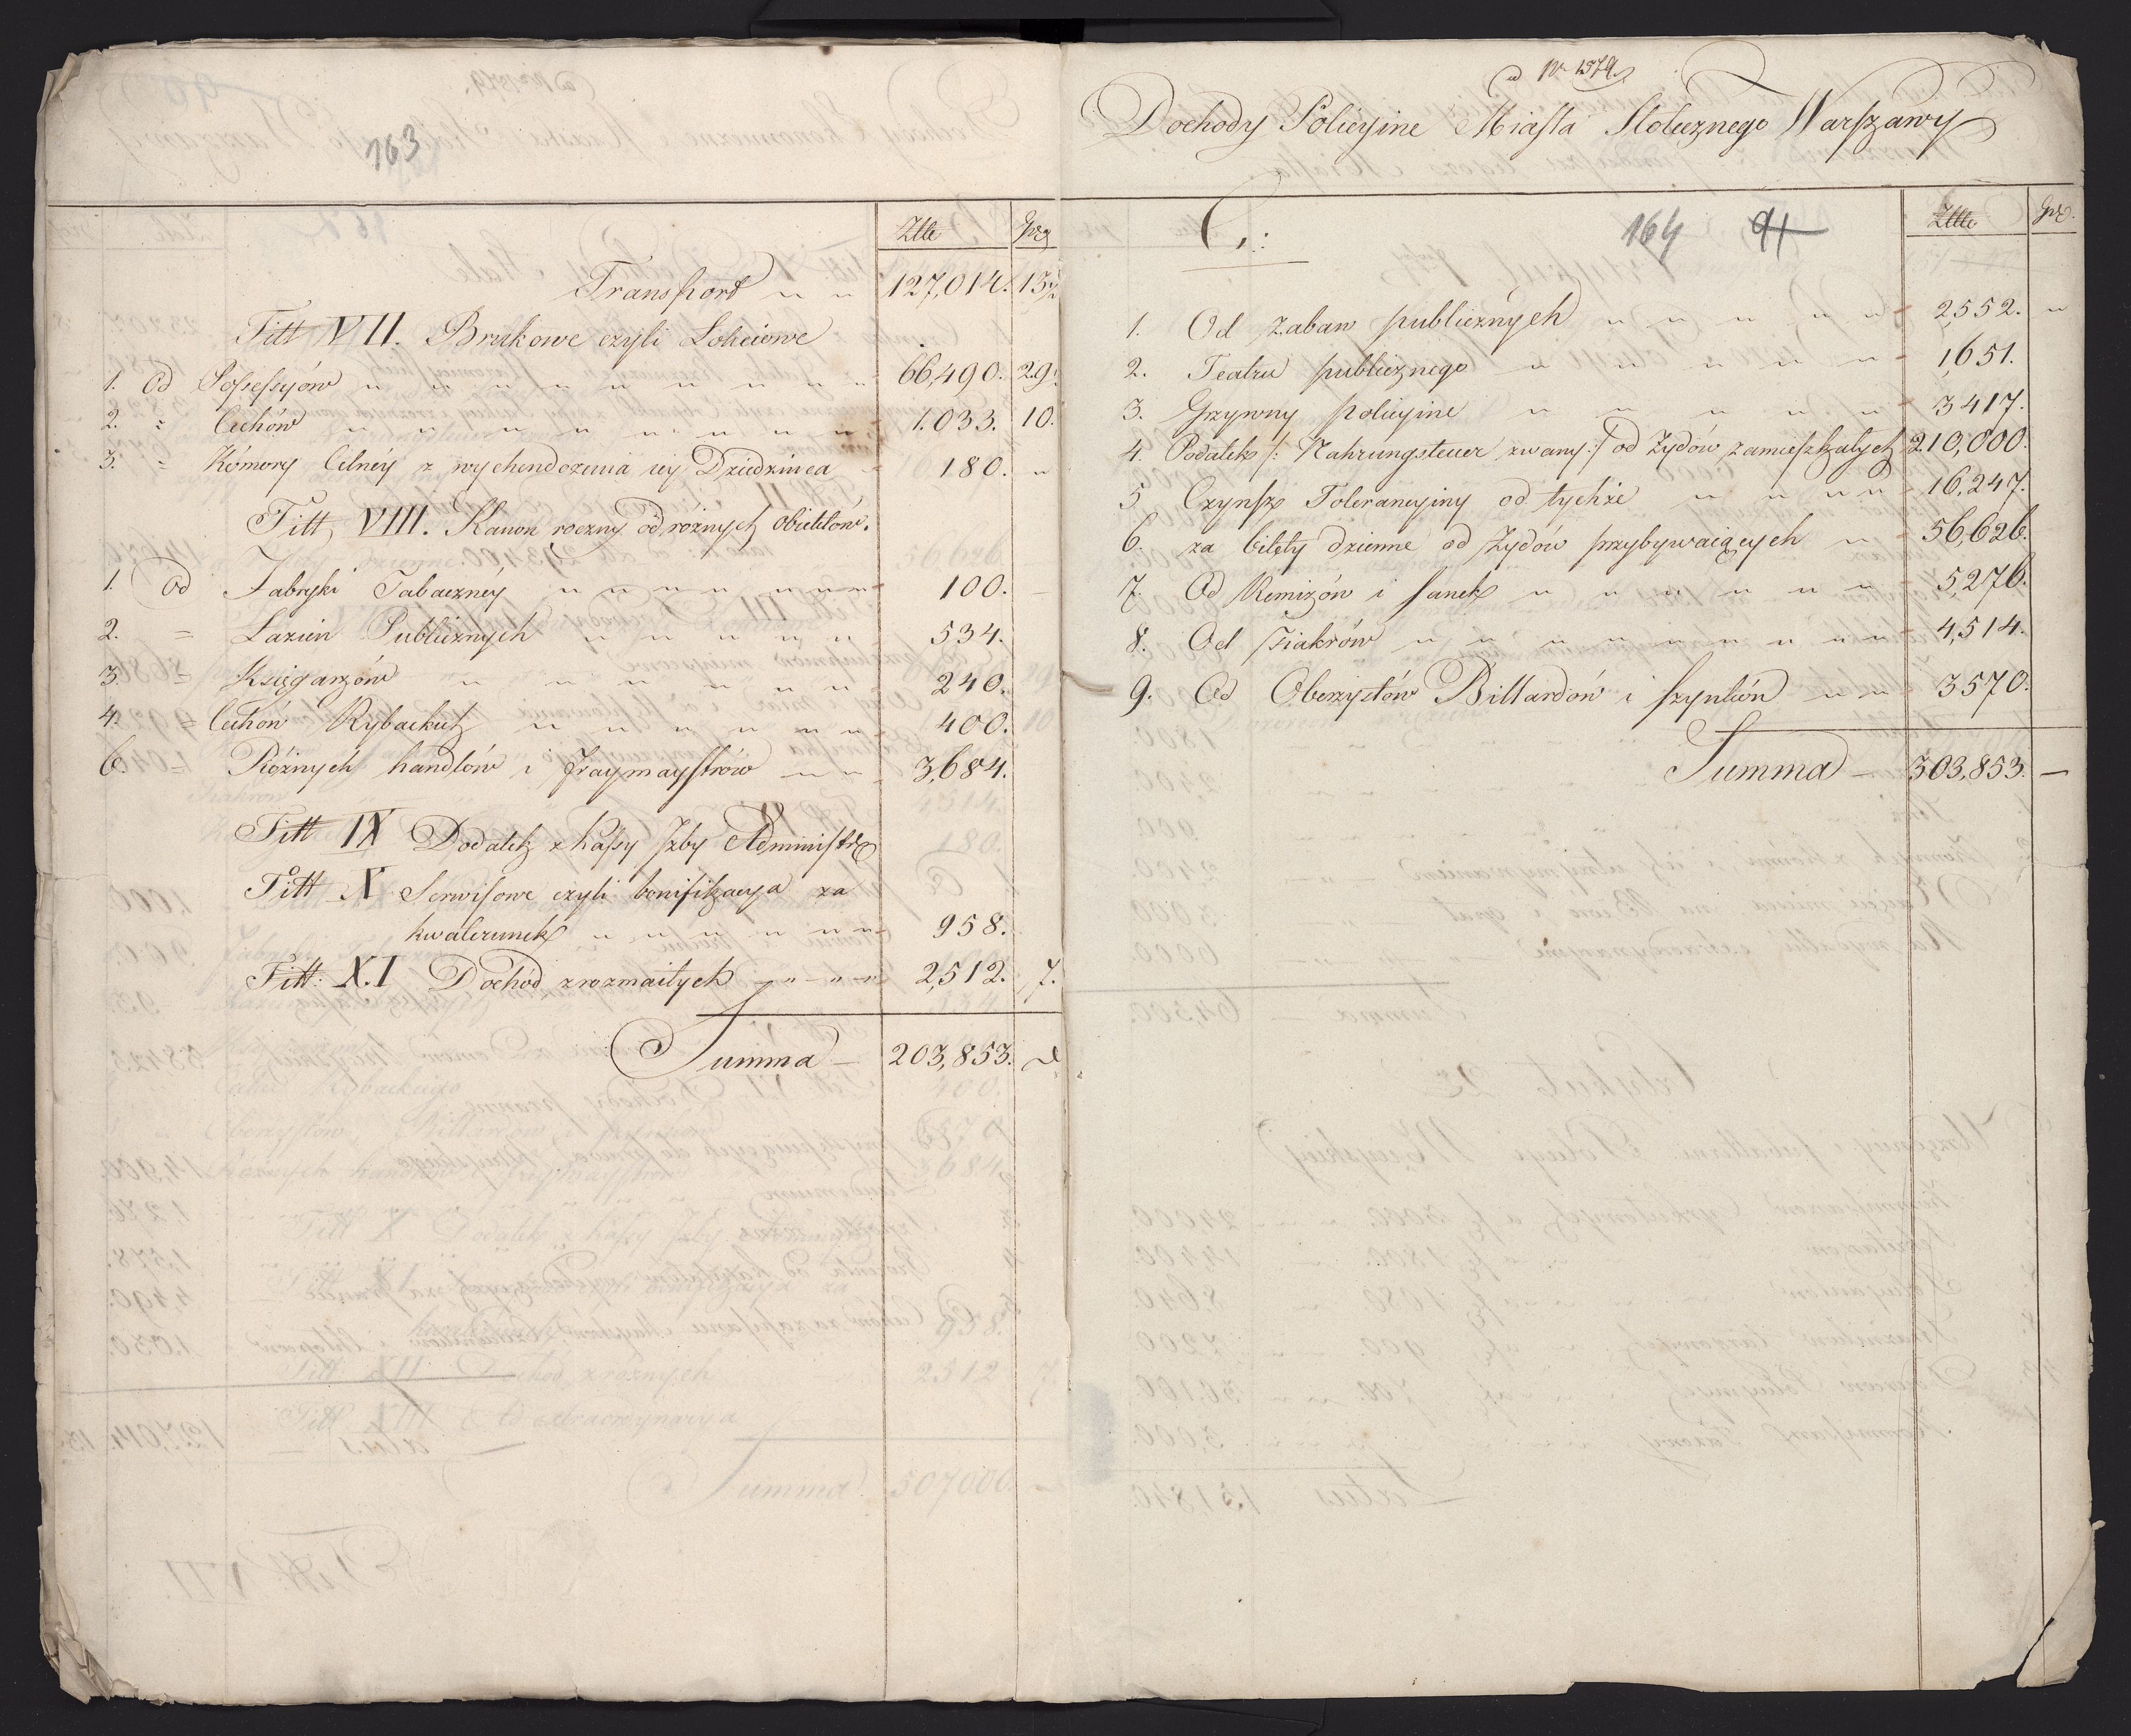 163
Ztte Grz
Transport 127,014. 13
Titt VII. Brukowe czyli Łokciowe
1. Od Possessyów 66,490. 29.
2. = Cechów 1.033. 10.
3. = Kómory Celnéy z wychendozenia iey Dziedzińca 180. "
Titt, VIII. Kanon roczny od różnych obiektów.
1. Od Fabryki Tabaczney 100. –
2. = Łazien Publicznych 534.
3. = Księgarzów 240.
4. = Cechów Rybackich 400.
6. = Różnych handlów i Fraymaystrów 3,684.
Titt IX Dodatek z Kassy Izby Administr
Titt X Serwisowe czyli bonifikacya za
kwaterunek 958.
Titt: X.I Dochod z rozmaitych 2,512. 7.
Summa – 203,853.
ad Nr 1579.
Dochody Policyine Miasta Stołecznego Warszawy
C: 164 91 Ztte Gr.
1. Od zabaw publicznych 2,552. "
2. Teatru publicznego 1,651.
3. Grzywny policyine 3417.
4. Podatek /: Nahrungsteuer zwany :/ od Żydów zamieszkałych 210,000.
5 Czynsz Tolerancyiny od tychże 16,247.
6. za bilety dzienne od Żydów przybywaiących 56,626.
7. Od Remizów i sanek 5,276.
8. Od Fiakrów 4,514.
9. Od Oberzystów Billardów i szynków 3570.
Summa – 303,853. –